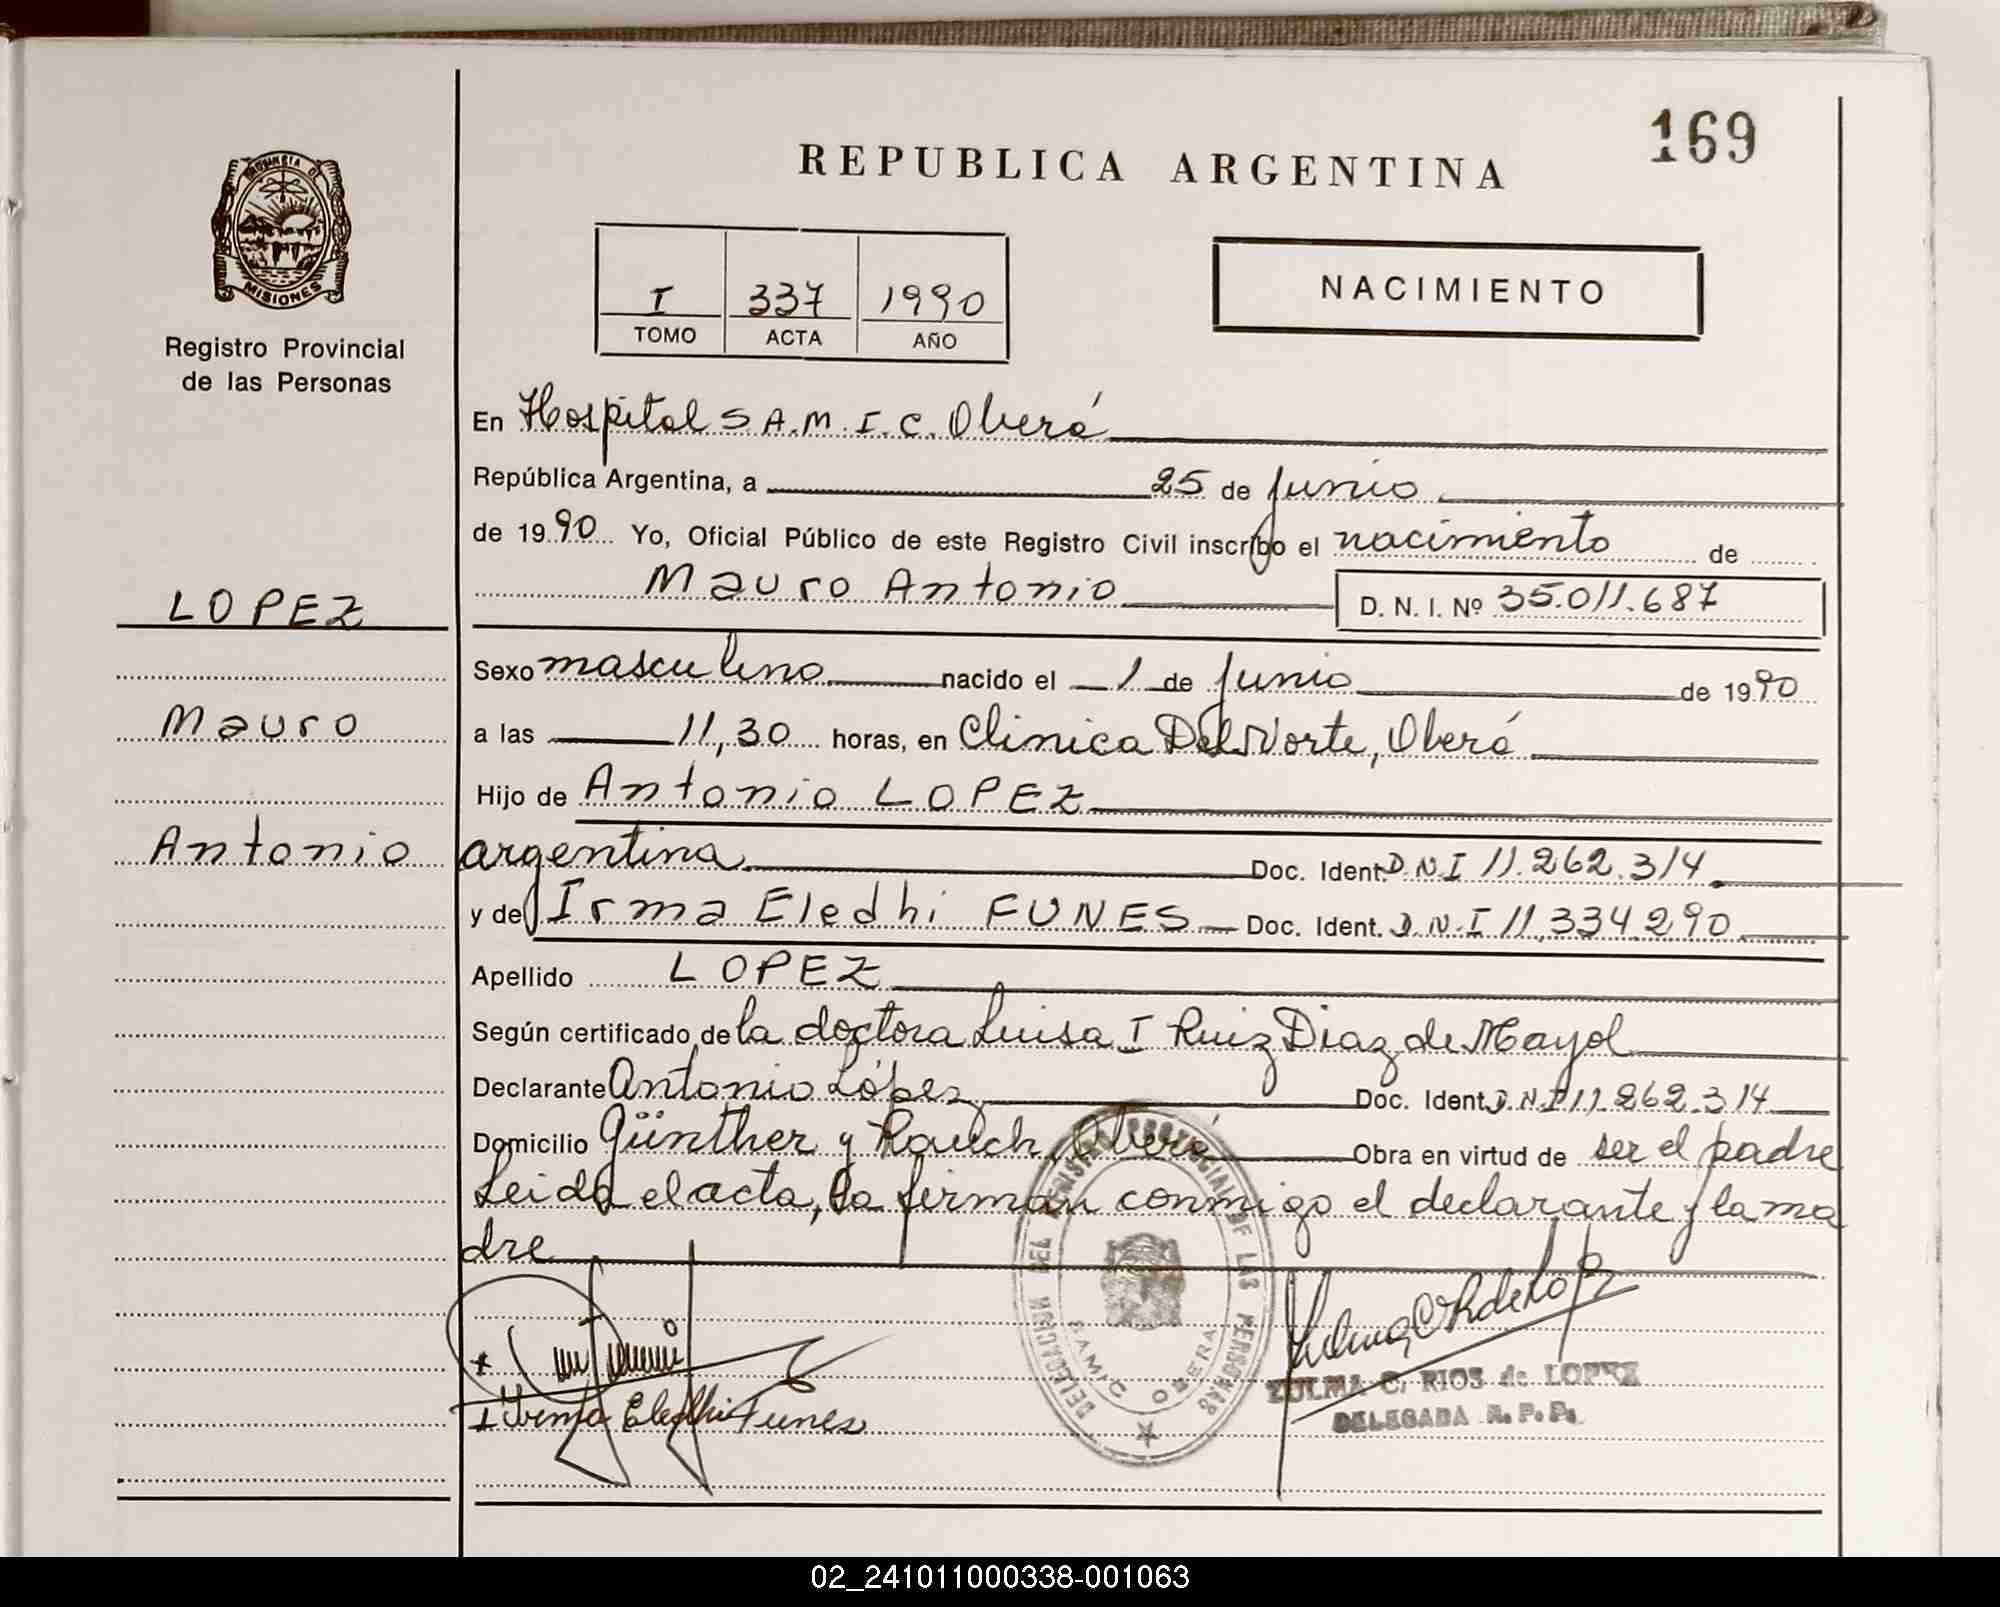 169
REPUBLICA ARGENTINA
PROVINCIA DE
MISIONES
Registro Provincial
de las Personas
I 337 1990
TOMO ACTA AÑO
NACIMIENTO
En Hospital S.A.M.I.C. Oberá
República Argentina, a 25 de Junio
de 1990 Yo, Oficial Público de este Registro Civil inscribo el nacimiento de
Mauro Antonio D. N. I. Nº 35.011.687
LOPEZ
Mauro
Antonio
Sexo masculino nacido el 1 de Junio de 1990
a las 11,30 horas, en Clinica Del Norte, Oberá
Hijo de Antonio LOPEZ
argentina Doc. Ident. D.N.I 11.262.314
y de Irma Eledhi FUNES Doc. Ident. D.N.I 11.334.290
Apellido LOPEZ
Según certificado de la doctora Luisa I Ruiz Diaz de Mayol
Declarante Antonio López Doc. Ident. D.N.I 11.262.314
Domicilio Günther y Rauch, Oberá Obra en virtud de ser el padre
Leida el acta, la firman conmigo el declarante y la ma
dre
Irma Eledhi Funes
DELEGACION DEL REGISTRO PROVINCIAL DE LAS PERSONAS
SAMIC OBERA
ZULMA C. RIOS de LOPEZ
DELEGADA R. P. P.
02_241011000338-001063